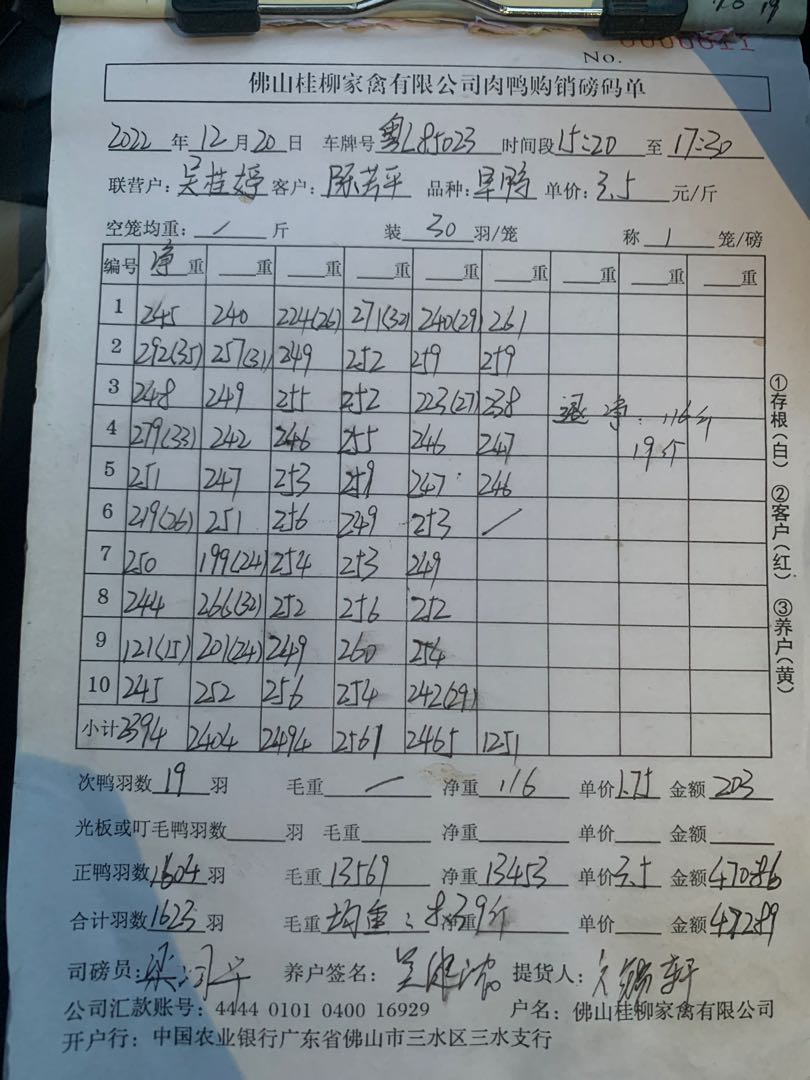 No. 0000641
佛山桂柳家禽有限公司肉鸭购销磅码单
2022年12月20日 车牌号粤L85023 时间段15:20至17:30
联营户：吴桂婷 客户：陈若平 品种：旱鸭 单价：3.5元/斤
空笼均重：/斤 装30羽/笼 称1笼/磅
编号 净重 重 重 重 重 重 重 重 重
1 245 240 224(26) 271(32) 240(29) 261
2 292(35) 257(31) 249 252 259 259
3 248 249 255 252 223(27) 238 退 净:116斤
4 279(33) 242 246 255 246 247 19个
5 251 247 253 259 247 246
6 219(26) 251 256 249 253 /
7 250 199(24) 254 253 249
8 244 266(32) 252 256 252
9 121(15) 201(24) 249 260 254
10 245 252 256 254 242(29)
小计 2394 2404 2494 2561 2465 1251
次鸭羽数19羽 毛重/ 净重116 单价1.75 金额203
光板或叮毛鸭羽数 羽 毛重 净重 单价 金额
正鸭羽数1604羽 毛重13569 净重13453 单价3.5 金额47086
合计羽数1623羽 毛重均重:8.39斤 净重 单价 金额47289
司磅员： 养户签名： 提货人：
公司汇款账号：4444 0101 0400 16929 户名：佛山桂柳家禽有限公司
开户行：中国农业银行广东省佛山市三水区三水支行
①存根（白） ②客户（红） ③养户（黄）